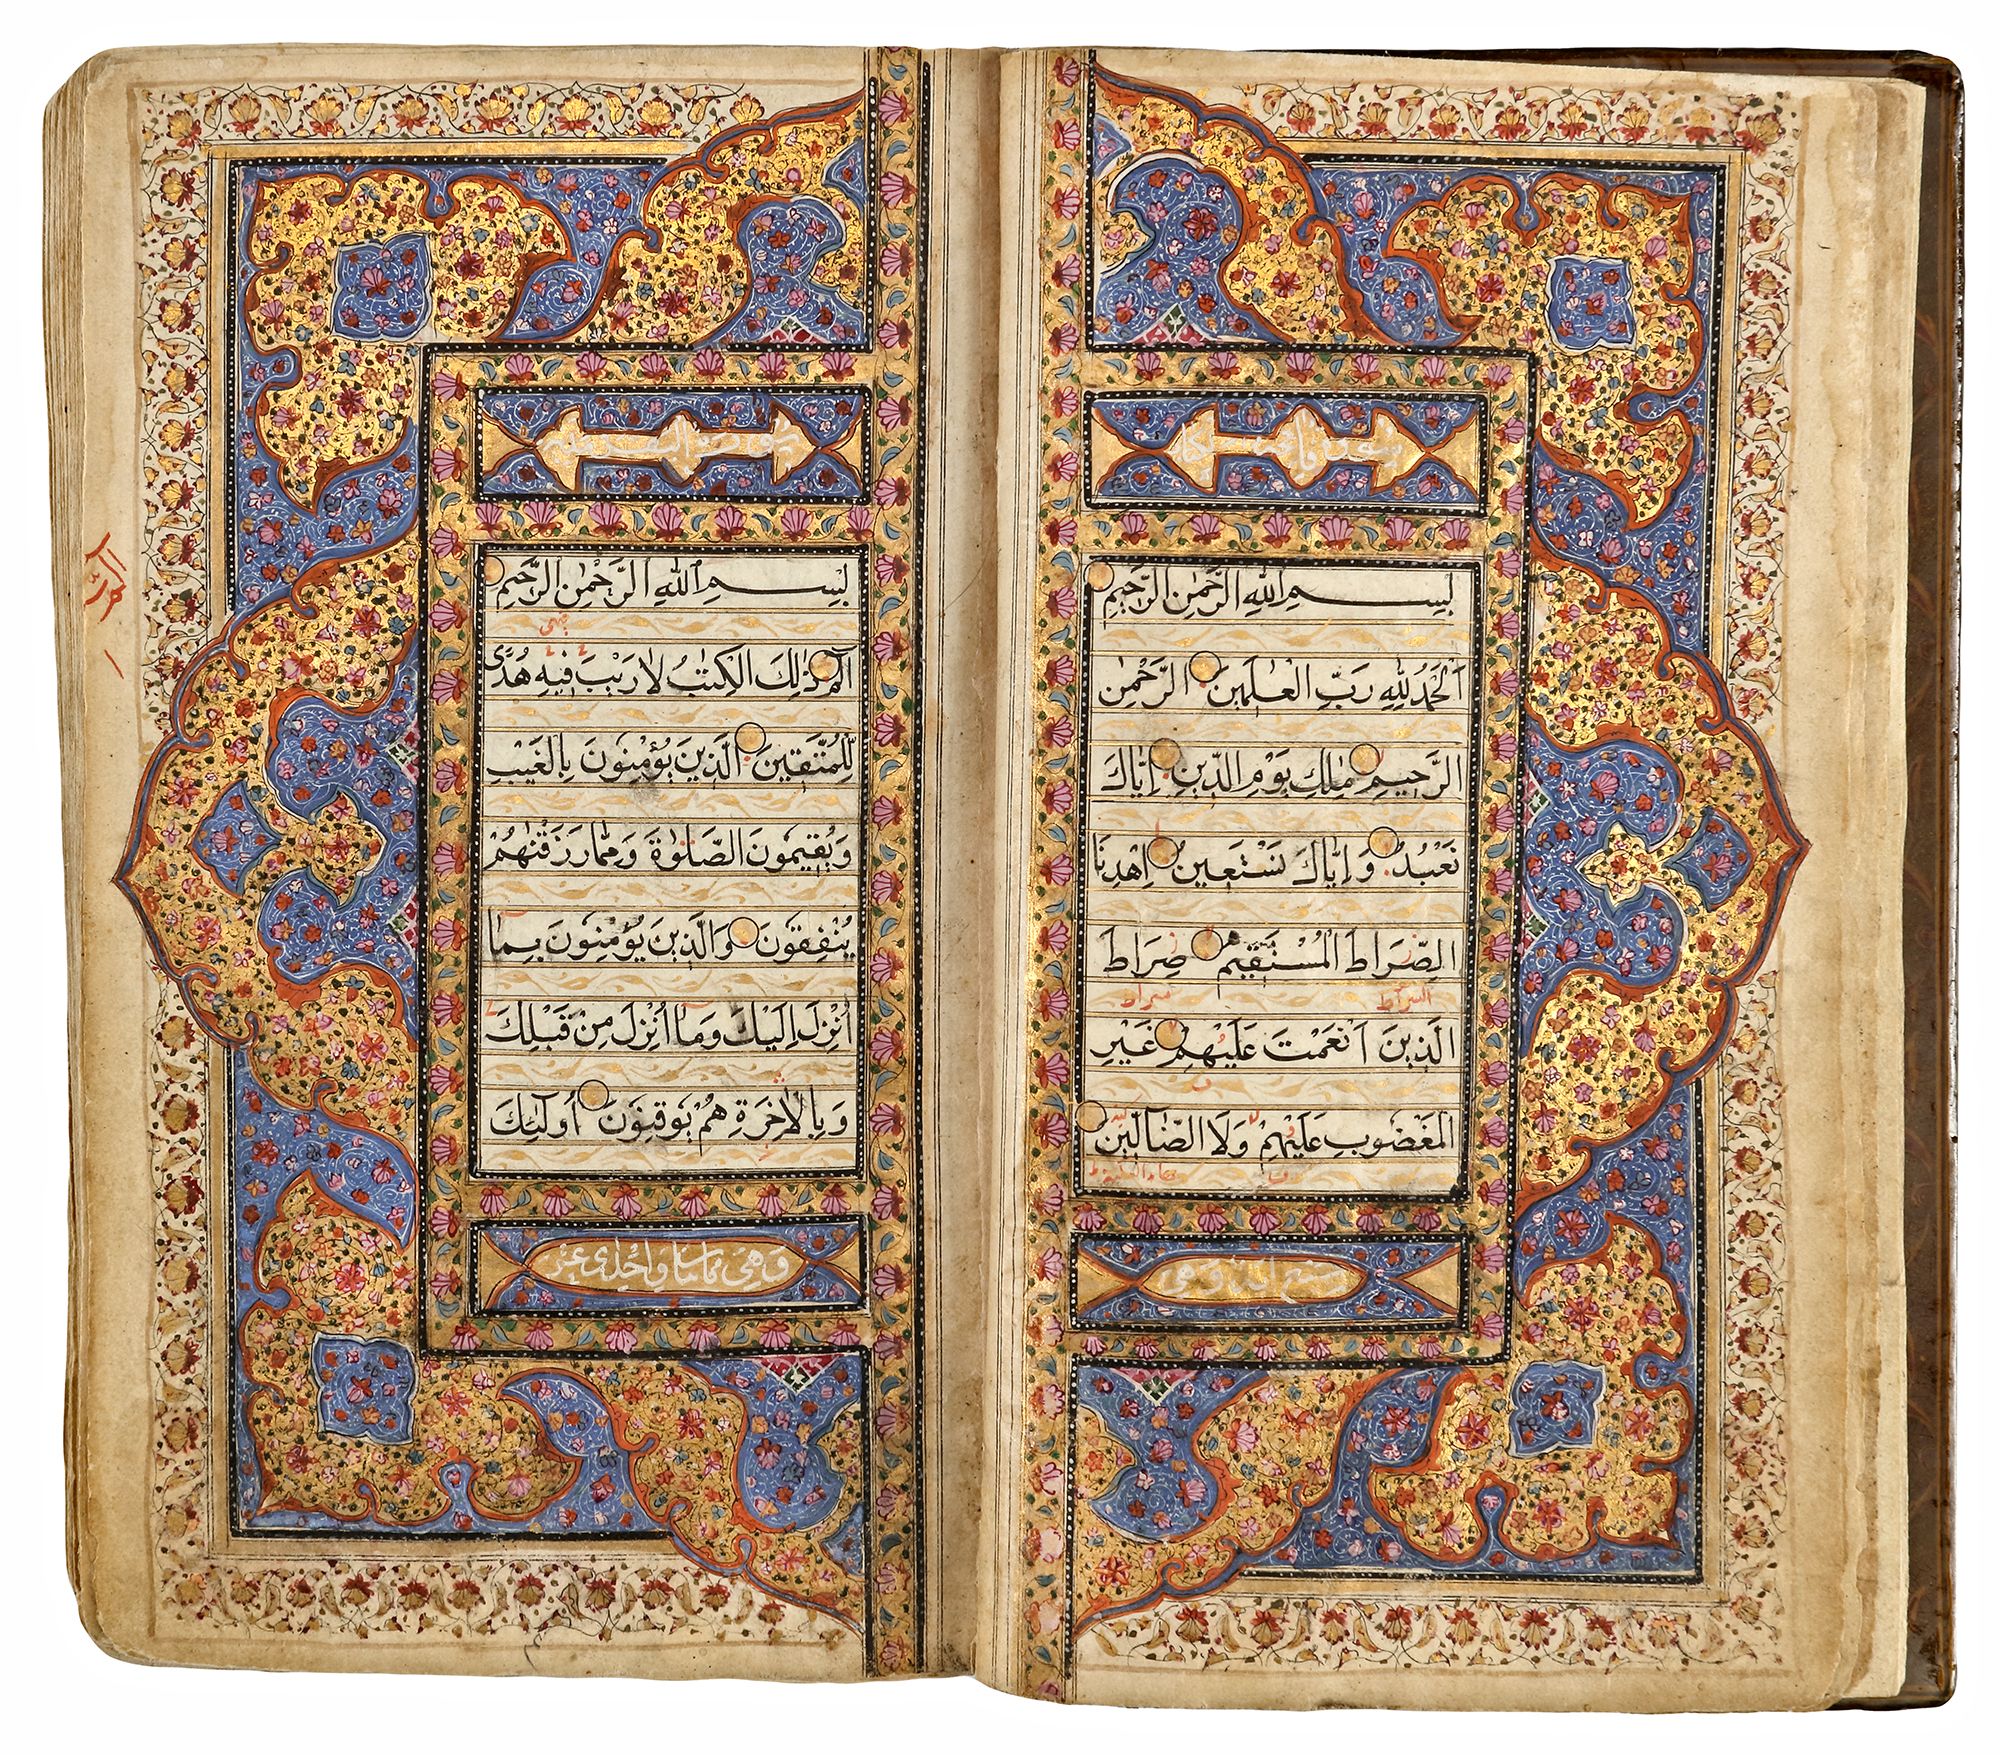 بِسْمِ اللهِ الرَّحْمٰنِ الرَّحِيمِ
اَلْحَمْدُ لِلّٰهِ رَبِّ الْعٰلَمِينَ الرَّحْمٰنِ
الرَّحِيمِ مٰلِكِ يَوْمِ الدِّينِ اِيَّاكَ
نَعْبُدُ وَاِيَّاكَ نَسْتَعِينُ اِهْدِنَا
الصِّرَاطَ الْمُسْتَقِيمَ صِرَاطَ
السراط سراط
الَّذِينَ اَنْعَمْتَ عَلَيْهِمْ غَيْرِ
الْمَغْضُوبِ عَلَيْهِمْ وَلَا الضَّالِّينَ
سبع آيات وهي
بِسْمِ اللهِ الرَّحْمٰنِ الرَّحِيمِ
الٓمٓ ذٰلِكَ الْكِتٰبُ لَا رَيْبَ فِيهِ هُدًى
لِلْمُتَّقِينَ الَّذِينَ يُؤْمِنُونَ بِالْغَيْبِ
وَيُقِيمُونَ الصَّلٰوةَ وَمِمَّا رَزَقْنٰهُمْ
يُنْفِقُونَ وَالَّذِينَ يُؤْمِنُونَ بِمَا
اُنْزِلَ اِلَيْكَ وَمَا اُنْزِلَ مِنْ قَبْلِكَ
وَبِالْاٰخِرَةِ هُمْ يُوقِنُونَ اُولٰئِكَ
وهي مائتا واحدى